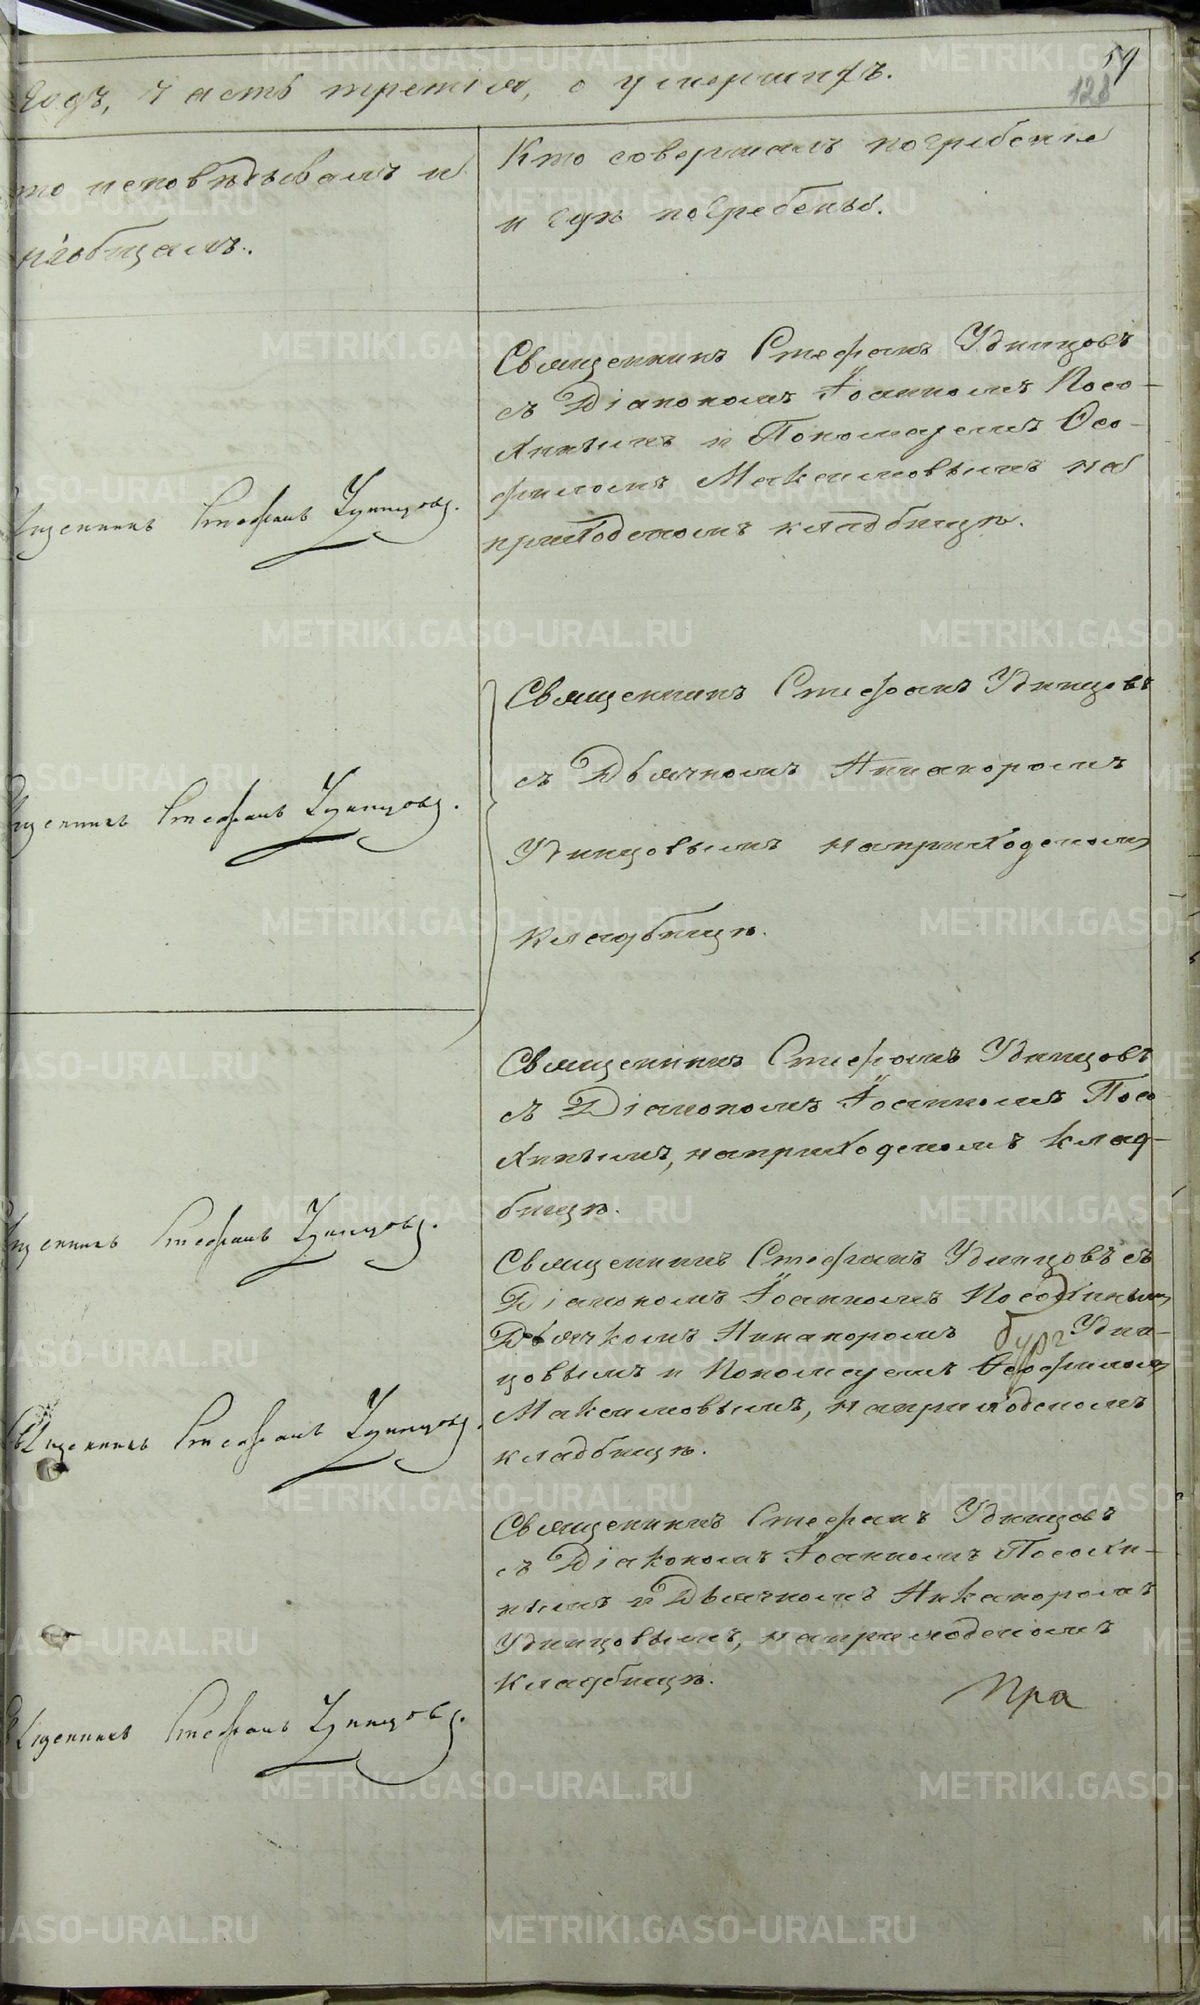 59
128
Годъ, Часть третія, о умершихъ.
то исповѣдывалъ и
пріобщалъ.
Кто совершалъ погребеніе
и гдѣ погребены.
Священникъ Стефанъ Удинцовъ
съ Діакономъ Іоанномъ Посо-
хинымъ и Пономаремъ Ѳео-
филомъ Максимовымъ на
приходскомъ кладбищѣ.
щенникъ Стефанъ Удинцовъ.
Священникъ Стефанъ Удинцовъ
съ Дьячкомъ Никаноромъ
Удинцовымъ на приходскомъ
кладбищѣ.
щенникъ Стефанъ Удинцовъ.
Священникъ Стефанъ Удинцовъ
съ Діакономъ Іоанномъ Посо-
хинымъ, на приходскомъ клад-
бищѣ.
щенникъ Стефанъ Удинцовъ.
Священникъ Стефанъ Удинцовъ съ
Діакономъ Іоанномъ Посохинымъ
Дьячкомъ Никаноромъ Удин-
цовымъ и Пономаремъ Ѳеофиломъ
Максимовымъ, на приходскомъ
кладбищѣ.
Священникъ Стефанъ Удинцовъ.
Священникъ Стефанъ Удинцовъ
съ Діакономъ Іоанномъ Посохи-
нымъ и Дьячкомъ Никаноромъ
Удинцовымъ, на приходскомъ
кладбищѣ.
щенникъ Стефанъ Удинцовъ.
Пра
METRIKI.GASO-URAL.RU